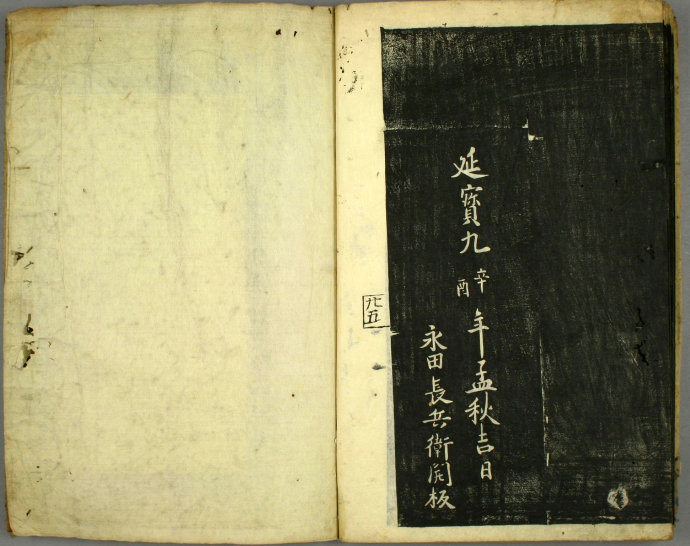 延寶九辛酉年孟秋吉日
永田長兵衛開板
廿五